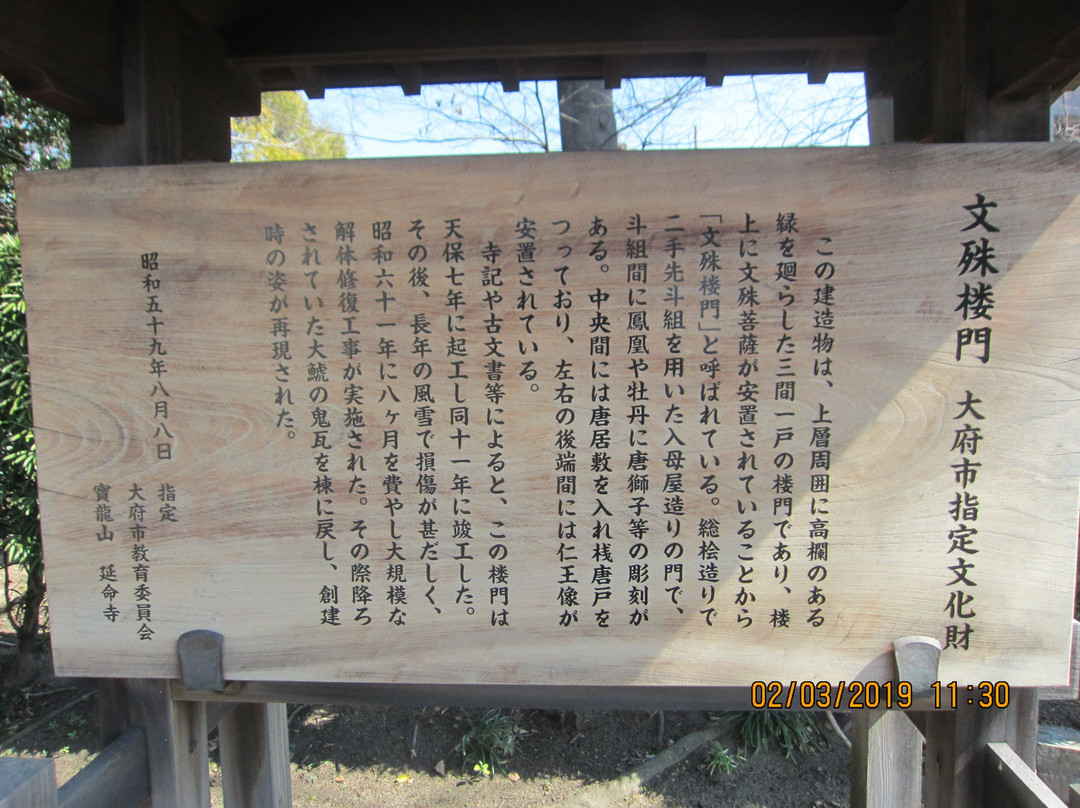 文殊楼門 大府市指定文化財
この建造物は、上層周囲に高欄のある
縁を廻らした三間一戸の楼門であり、楼
上に文殊菩薩が安置されていることから
「文殊楼門」と呼ばれている。総桧造りで
二手先斗組を用いた入母屋造りの門で、
斗組間に鳳凰や牡丹に唐獅子等の彫刻が
ある。中央間には唐居敷を入れ桟唐戸を
つっており、左右の後端間には仁王像が
安置されている。
寺記や古文書等によると、この楼門は
天保七年に起工し同十一年に竣工した。
その後、長年の風雪で損傷が甚だしく、
昭和六十一年に八ヶ月を費やし大規模な
解体修復工事が実施された。その際降ろ
されていた大鯱の鬼瓦を棟に戻し、創建
時の姿が再現された。
昭和五十九年八月八日 指定
大府市教育委員会
寳龍山 延命寺
02/03/2019 11:30